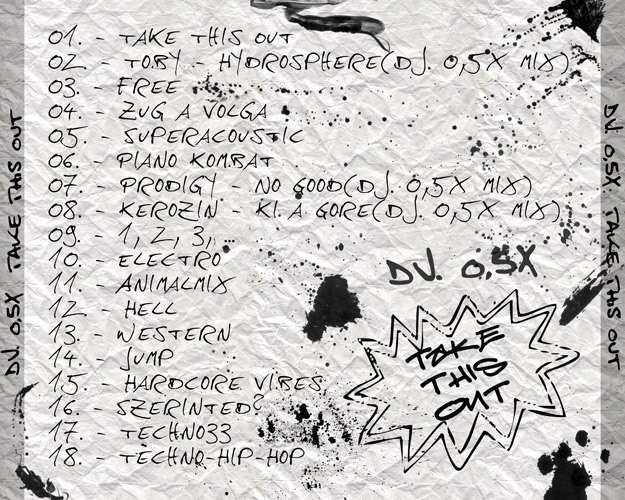 01. - TAKE THIS OUT
02. - TOBY - HYDROSPHERE(DJ. 0,5X MIX)
03. - FREE
04. - ZUG A VOLGA
05. - SUPERACOUSTIC
06. - PIANO KOMBAT
07. - PRODIGY - NO GOOD(DJ. 0,5X MIX)
08. - KEROZIN - KI. A GORE(DJ. 0,5X MIX)
09. - 1, 2, 3, ...
10. - ELECTRO
11. - ANIMALMIX
12 - HELL
13. - WESTERN
14. - JUMP
15. - HARDCORE VIBES
16. - SZERINTED?
17. - TECHNO33
18. - TECHNO-HIP-HOP
DJ. 0,5X
TAKE
THIS
OUT
DJ. 0,5X TAKE THIS OUT
DJ. 0,5X TAKE THIS OUT